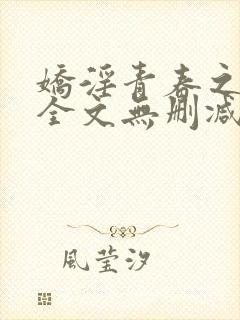 嬌淫青春之
全文無刪減
風莹汐